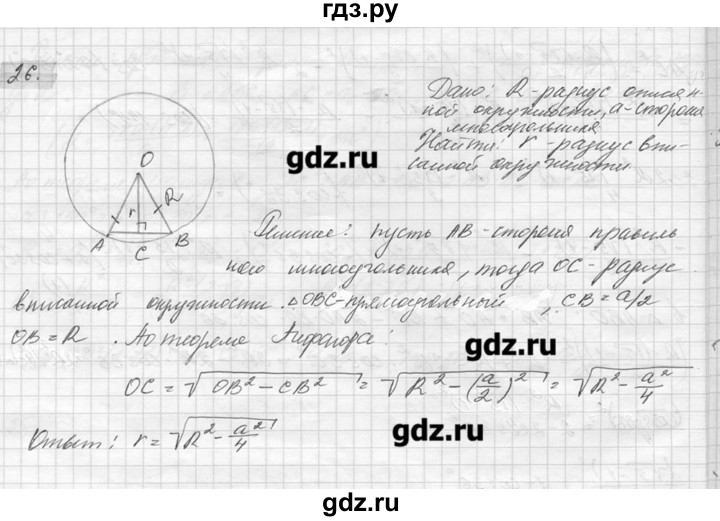 гдз.ру
26.
Дано: R - радиус описан-
ной окружности, a - сторона
многоугольника
Найти: r - радиус впи-
санной окружности
gdz.ru
O
r
R
A
C
B
Решение: пусть AB - сторона правиль
ного многоугольника, тогда OC - радиус
вписанной окружности. △OBC - прямоугольный, CB = a/2
OB = R. По теореме Пифагора:
gdz.ru
OC = √(OB² - CB²) = √(R² - (a/2)²) = √(R² - a²/4)
Ответ: r = √(R² - a²/4)
gdz.ru
gdz.ru